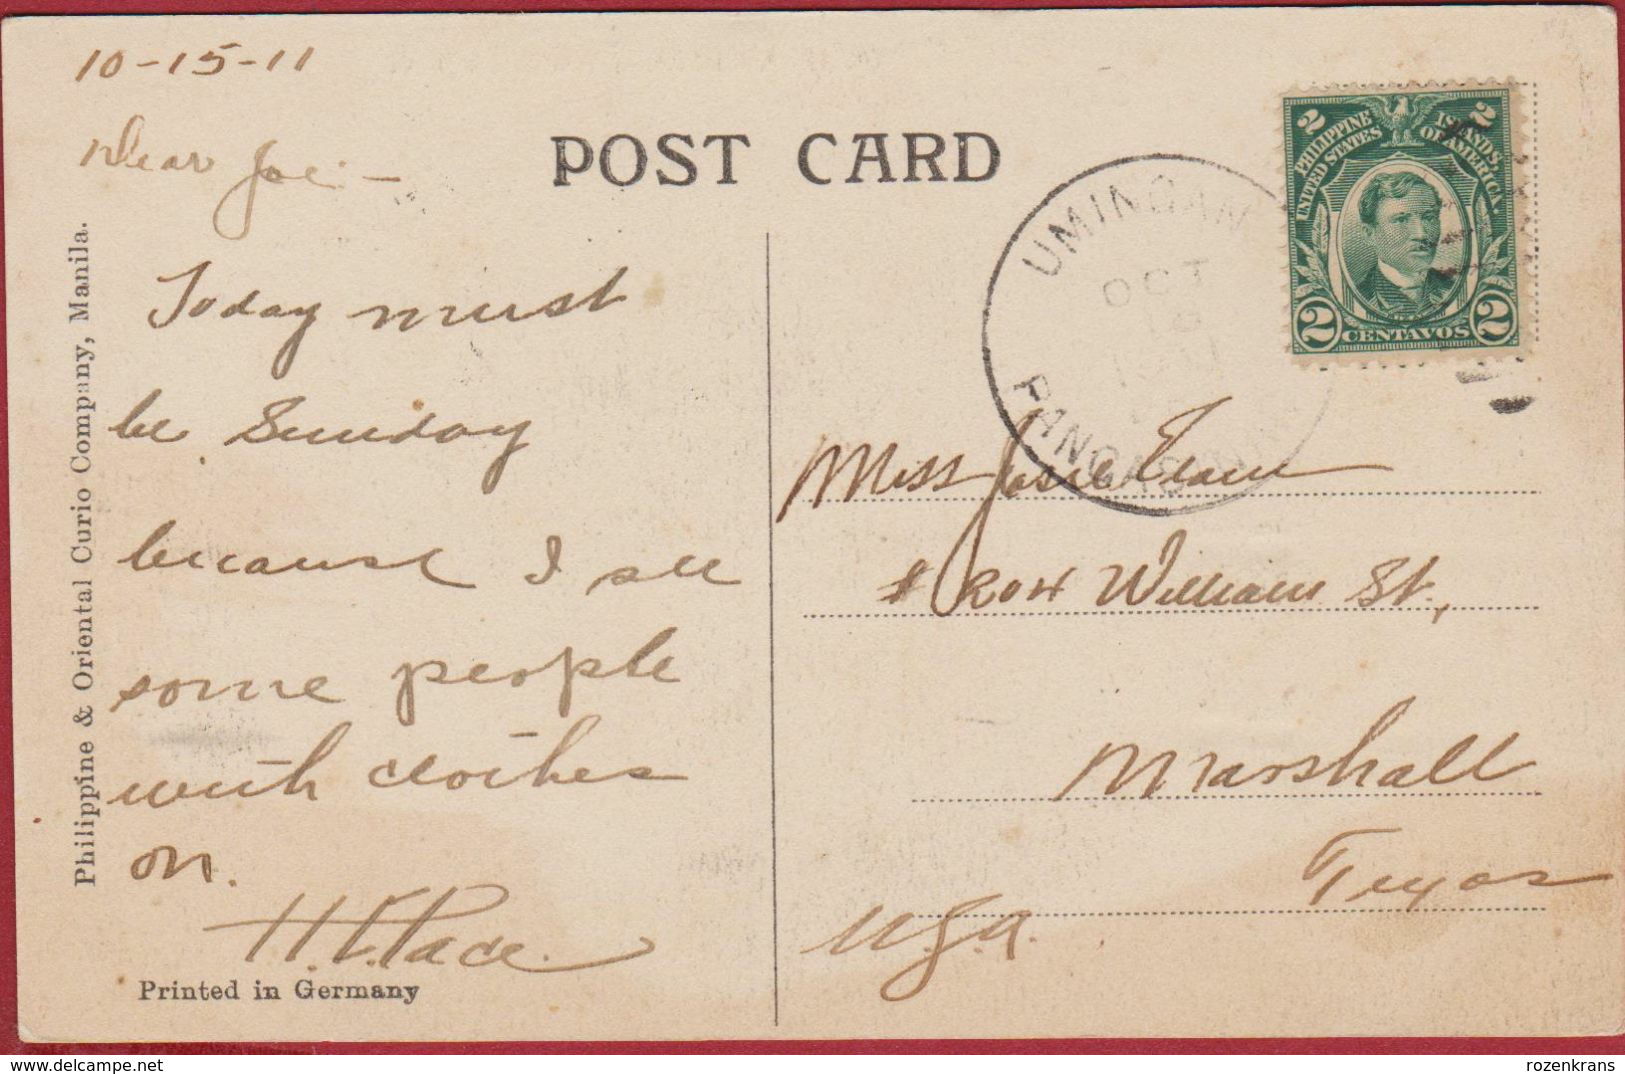 10-15-11
Dear Joe -
Today must
be Sunday
because I see
some people
with clothes
on.
H.E. Pace.
Printed in Germany
Philippine & Oriental Curio Company, Manila.
POST CARD
UMINGAN
OCT
PANGAS
2 2
PHILIPPINE ISLANDS,
UNITED STATES OF AMERICA.
2 CENTAVOS 2
Miss Josie
# 204 William St.,
Marshall
Texas
U.S.A.
www.delcampe.net
rozenkrans